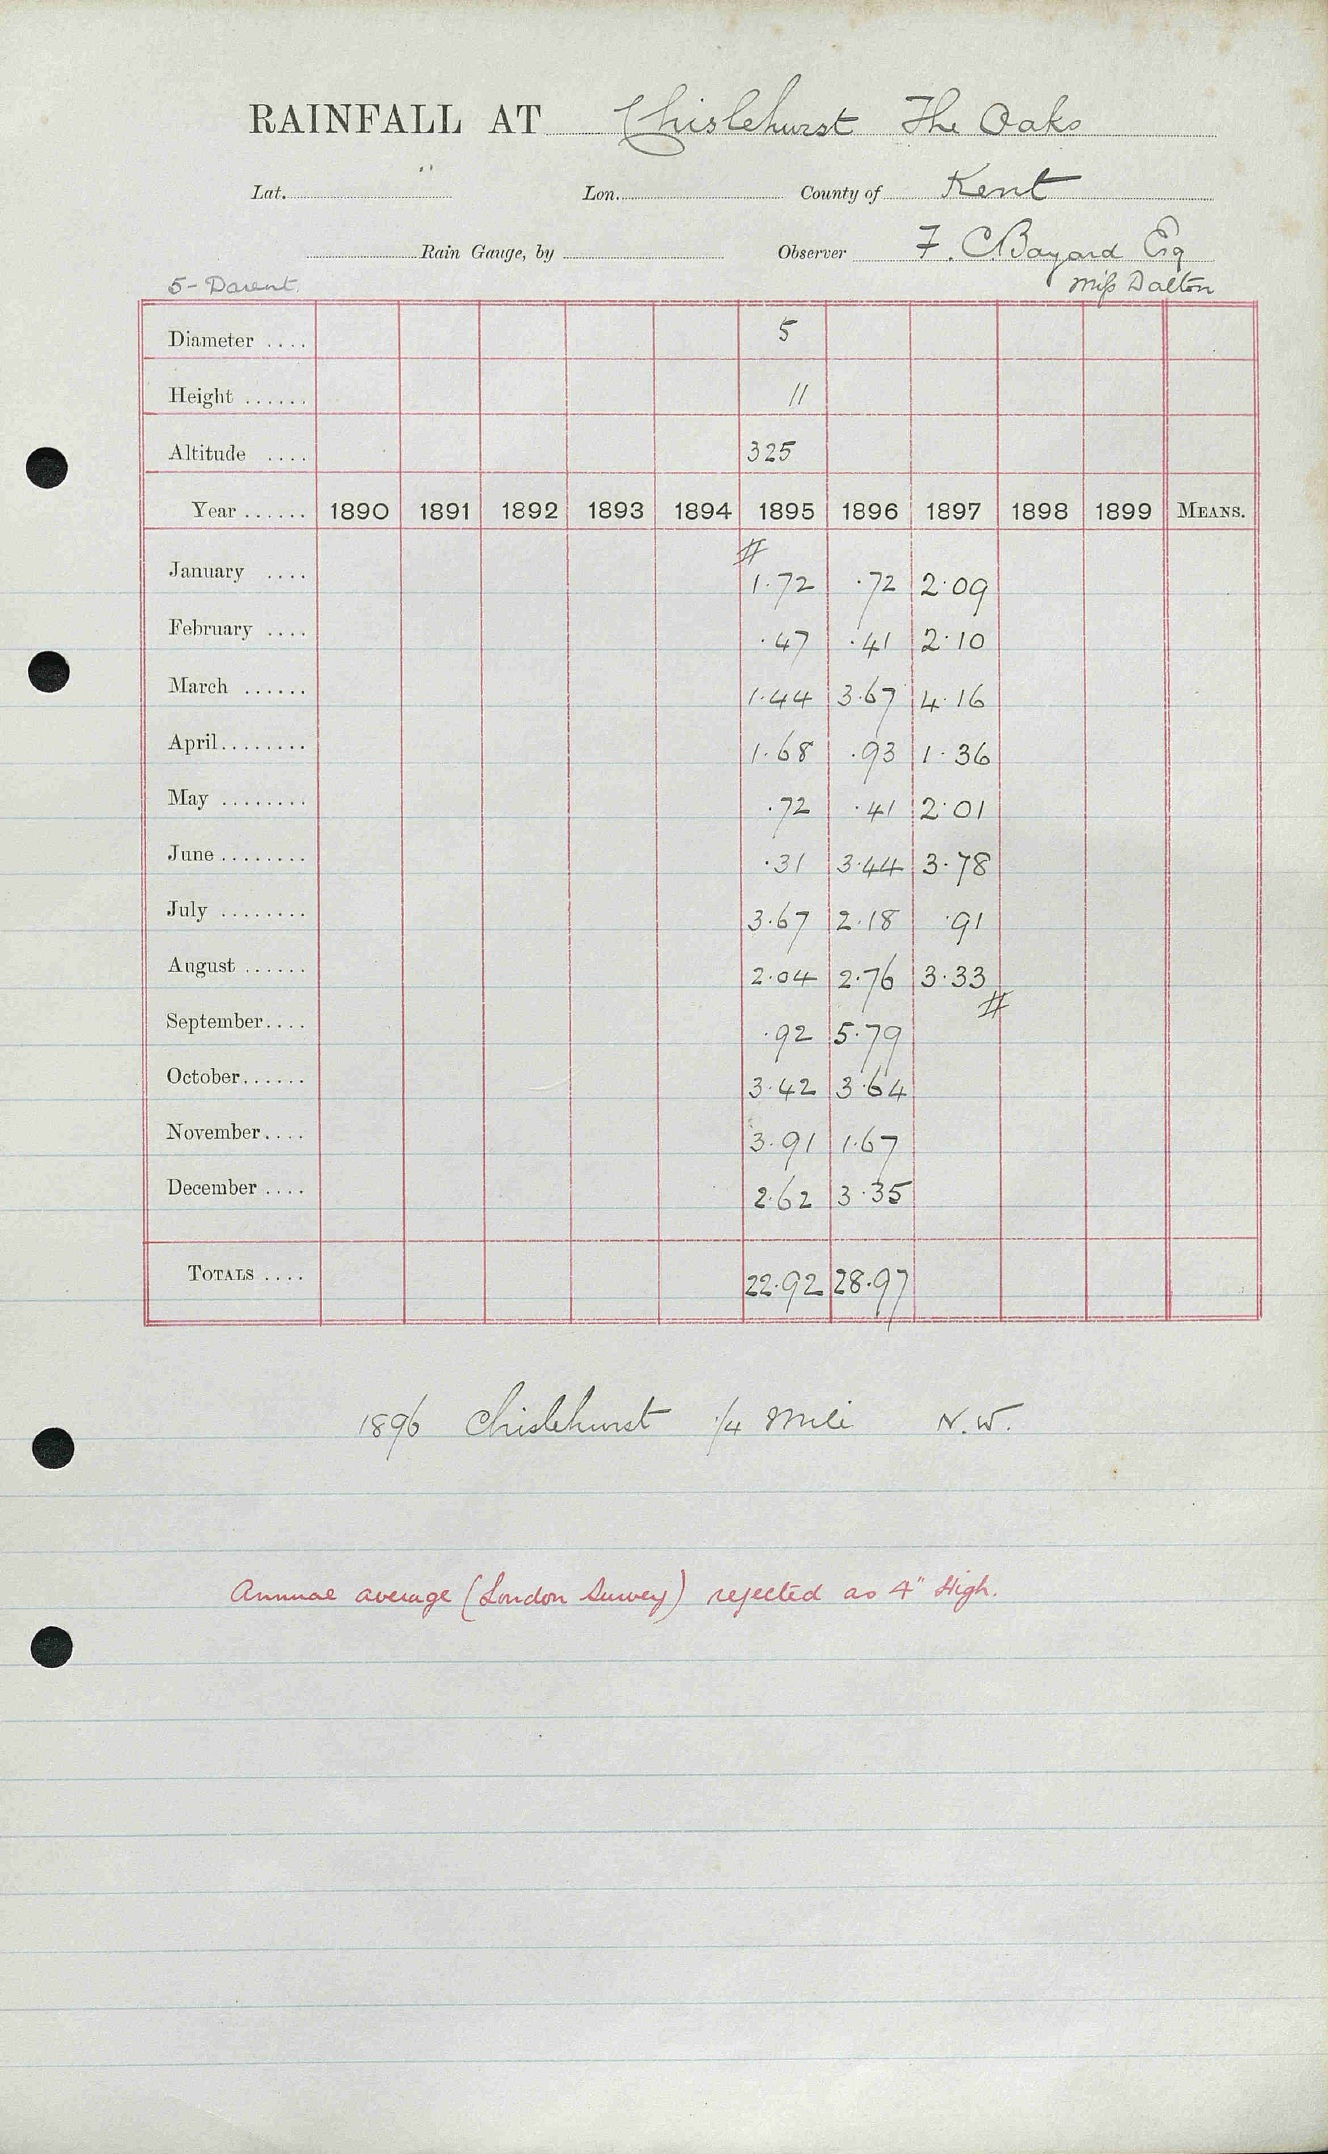 RAINFALL AT Chislehurst The Oaks
Lat. Lon. County of Kent
Rain Gauge, by Observer F. C. Bayard Esq
5 - Darent. Miss Dalton
Diameter .... 5
Height ...... 11
Altitude .... 325
Year ...... 1890 1891 1892 1893 1894 1895 1896 1897 1898 1899 MEANS.
#
January .... 1.72 .72 2.09
February .... .47 .41 2.10
March ...... 1.44 3.67 4.16
April ........ 1.68 .93 1.36
May ........ .72 .41 2.01
June ........ .31 3.44 3.78
July ........ 3.67 2.18 .91
August ...... 2.04 2.76 3.33
#
September .... .92 5.79
October ...... 3.42 3.64
November .... 3.91 1.67
December .... 2.62 3.35
TOTALS .... 22.92 28.97
1896 Chislehurst 1/4 Mile N.W.
Annual average (London Survey) rejected as 4" High.